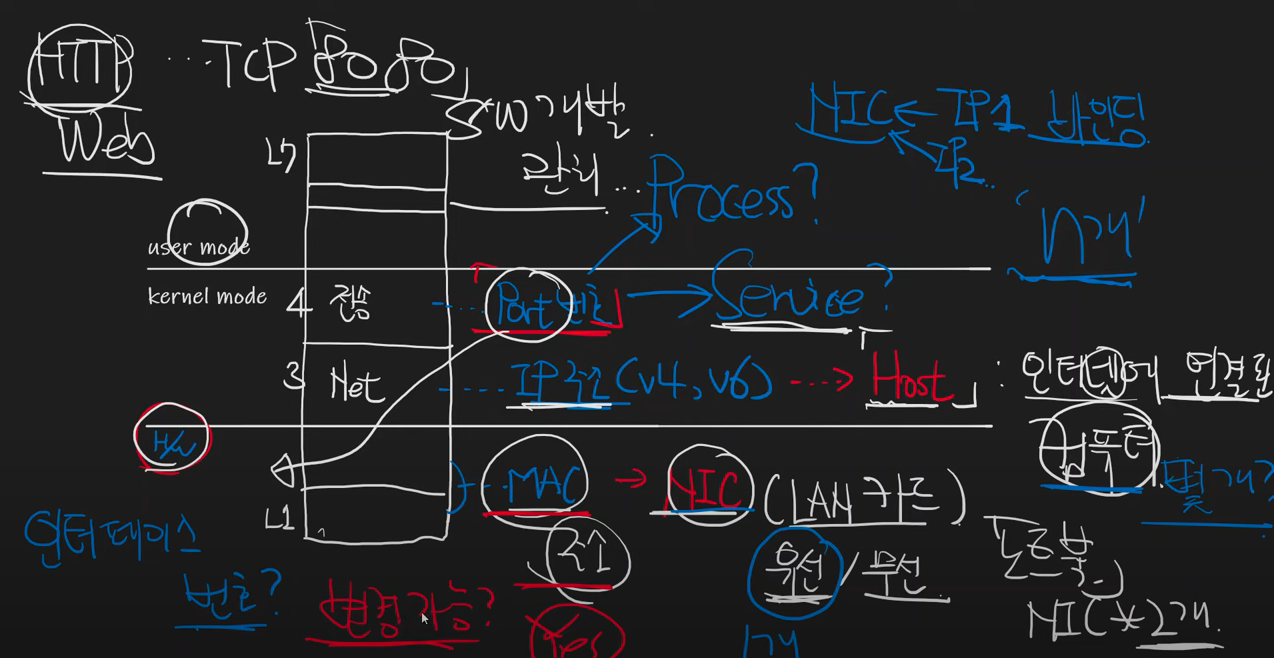 HTTP ... TCP 「80 80」
Web
S/W 개발
관리...
NIC ← IP1 바인딩
IP2..
'n개'
L7
Process?
user mode
kernel mode
4 전송 --- Port 번호 → Service?
3 Net ---- IP주소 (v4, v6) ---> Host」 : 인터넷에 연결된
컴퓨터
H/W
--- MAC → NIC (LAN 카드)
몇 개?
L1
주소
유선 / 무선
노트북
NIC * 2개.
인터페이스
번호?
변경가능?
Yes
1개